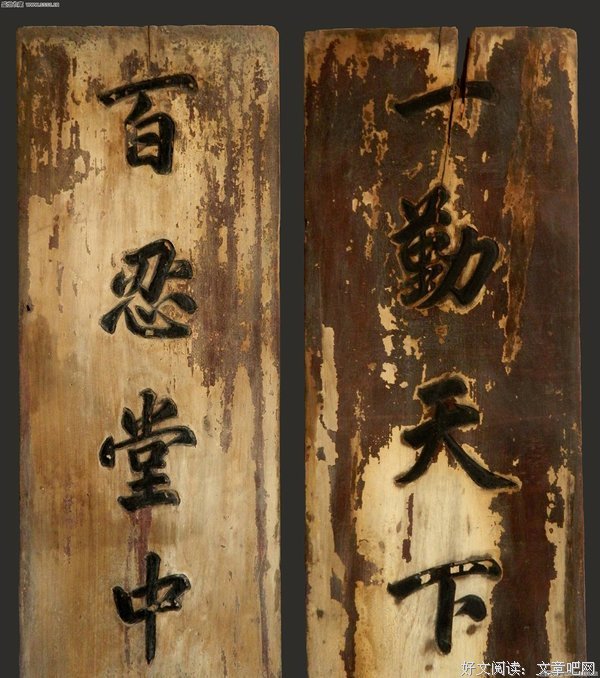 一勤天下
百忍堂中
好文阅读：文章吧网